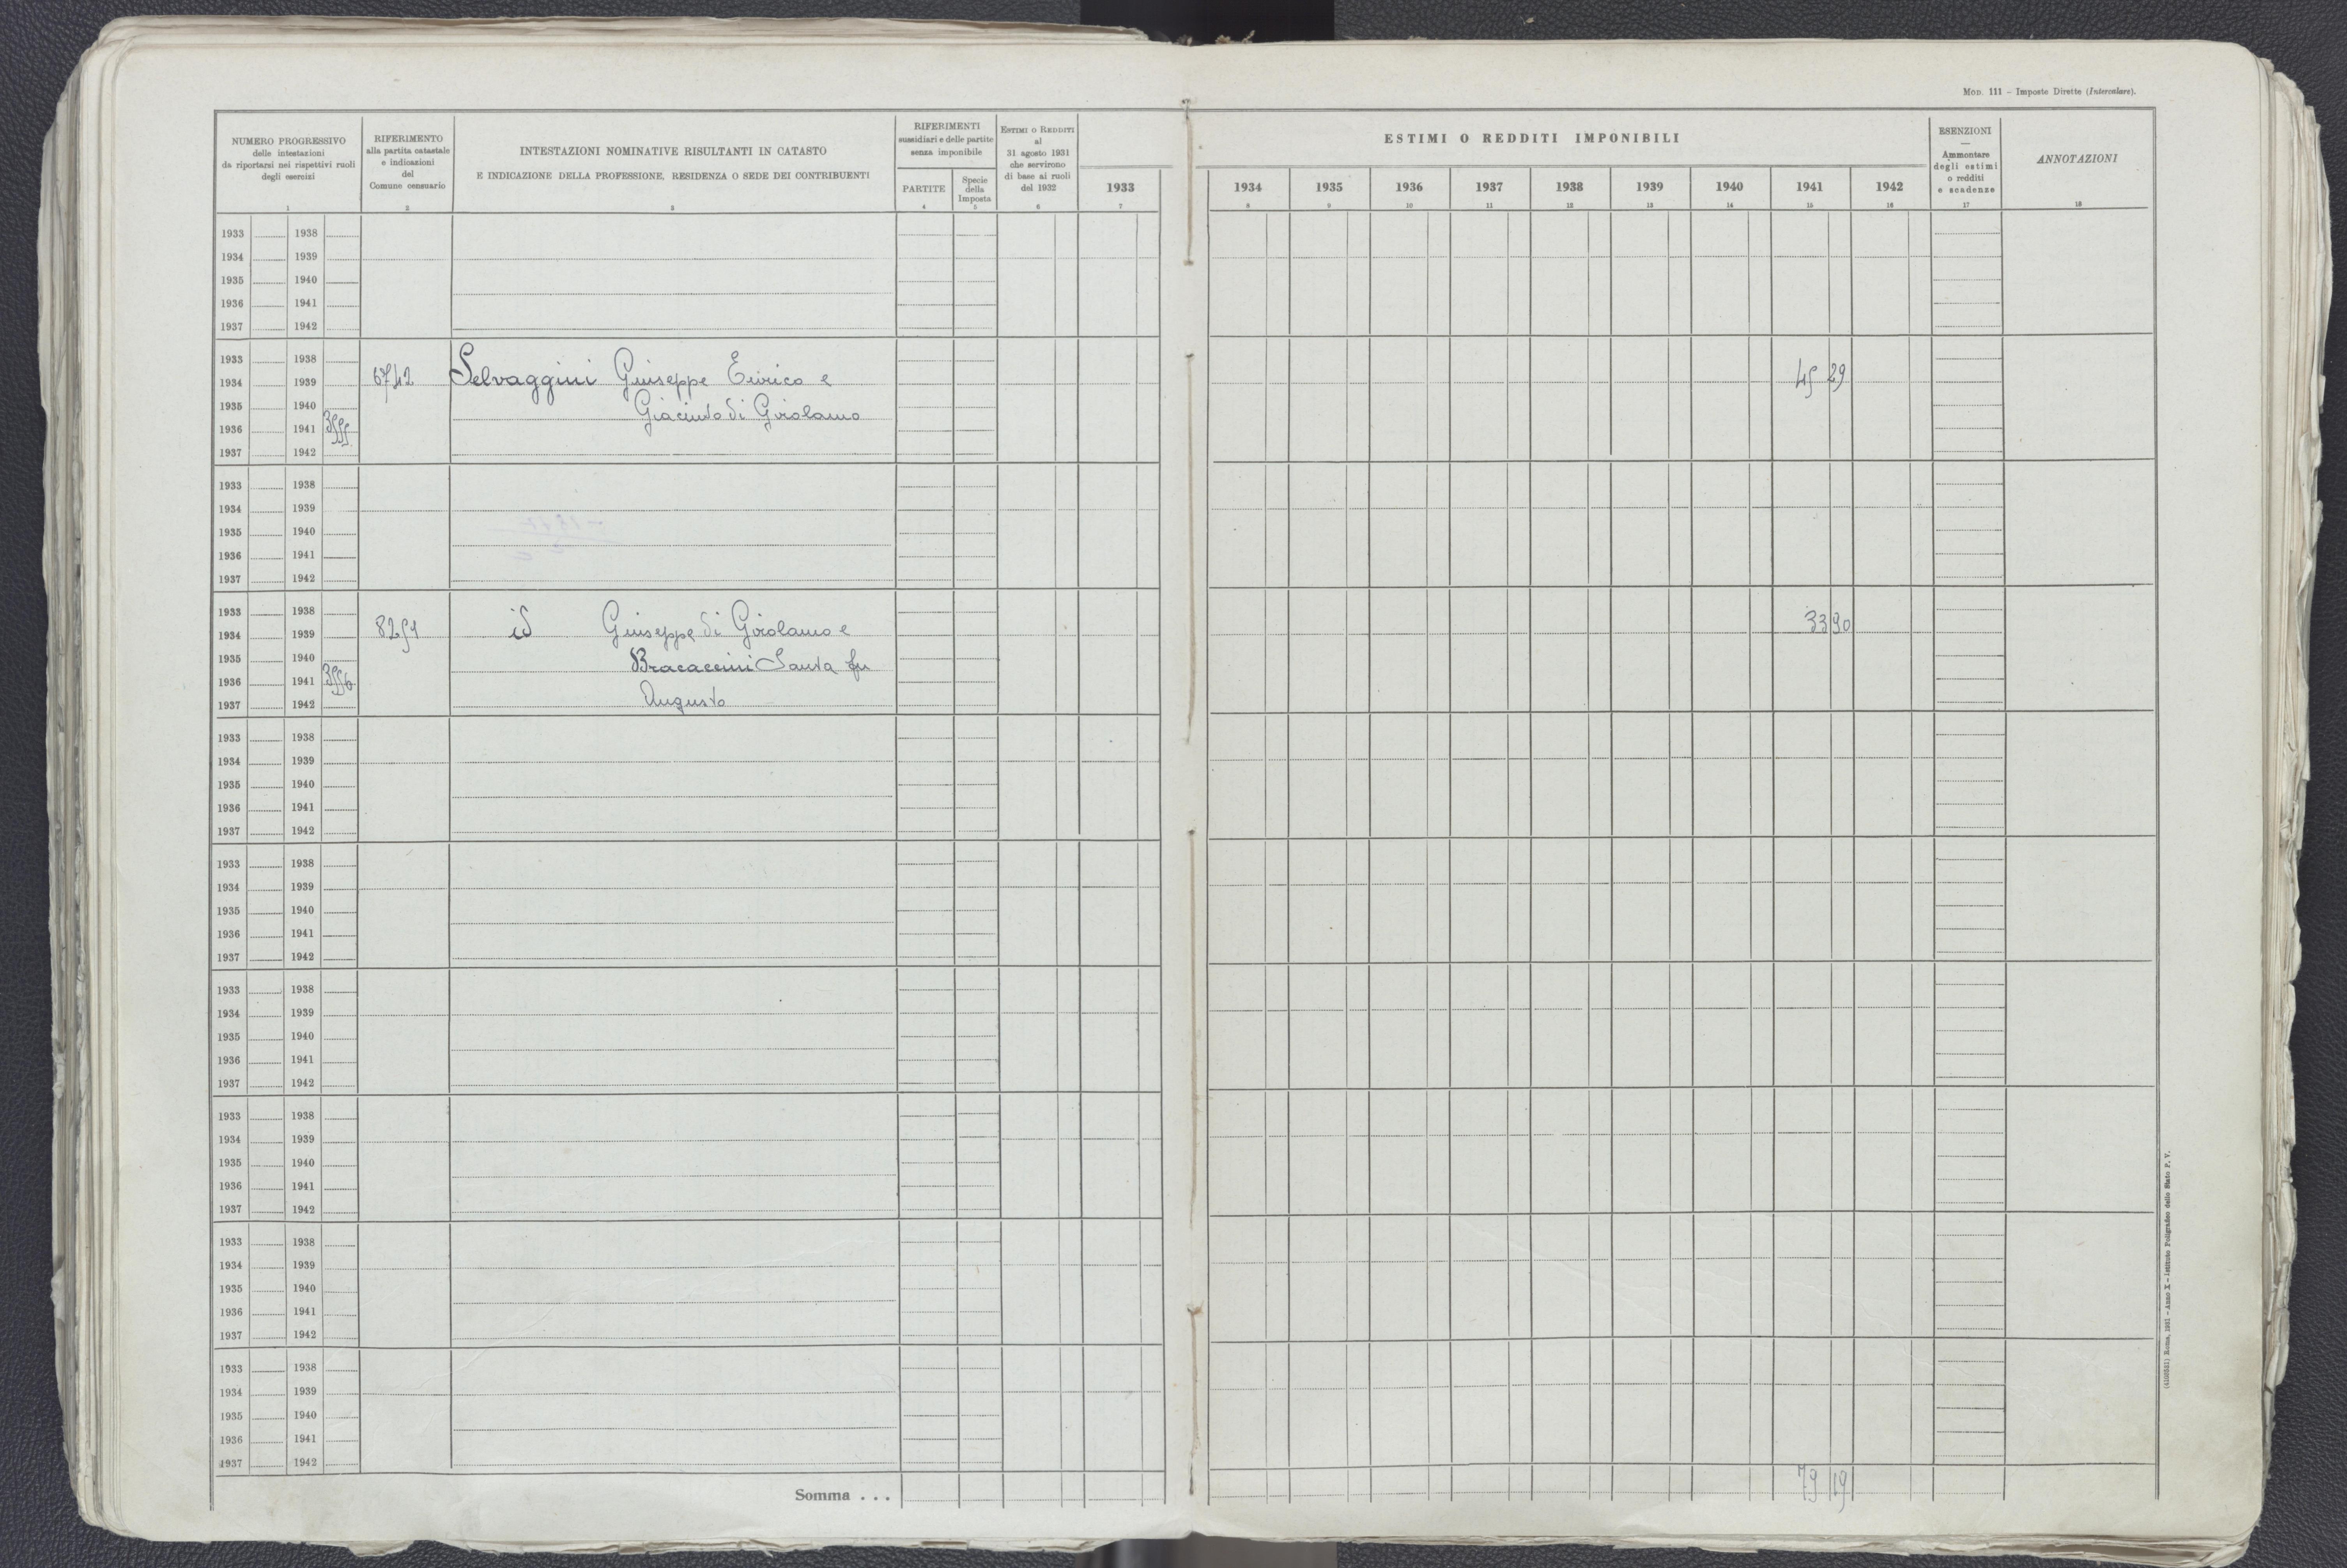 Mod. 111 – Imposte Dirette (Intercalare).
NUMERO PROGRESSIVO
delle intestazioni
da riportarsi nei rispettivi ruoli
degli esercizi
1
RIFERIMENTO
alla partita catastale
e indicazioni
del
Comune censuario
2
INTESTAZIONI NOMINATIVE RISULTANTI IN CATASTO
E INDICAZIONE DELLA PROFESSIONE, RESIDENZA O SEDE DEI CONTRIBUENTI
3
RIFERIMENTI
sussidiari e delle partite
senza imponibile
PARTITE
4
Specie
della
Imposta
5
Estimi o Redditi
al
31 agosto 1931
che servirono
di base ai ruoli
del 1932
6
1933
7
ESTIMI O REDDITI IMPONIBILI
1934 1935 1936 1937 1938 1939 1940 1941 1942
8 9 10 11 12 13 14 15 16
ESENZIONI
—
Ammontare
degli estimi
o redditi
e scadenze
17
ANNOTAZIONI
18
1933 1938
1934 1939
1935 1940
1936 1941
1937 1942
1933 1938
1934 1939 6742 Selvaggini Giuseppe Enrico e 45 29
1935 1940 Giacinto di Girolamo
1936 1941 3555
1937 1942
1933 1938
1934 1939
1935 1940
1936 1941
1937 1942
1933 1938
1934 1939 8251 id Giuseppe di Girolamo e 33 90
1935 1940 Bracaccini Santa fu
1936 1941 3556
1937 1942 Augusto
1933 1938
1934 1939
1935 1940
1936 1941
1937 1942
1933 1938
1934 1939
1935 1940
1936 1941
1937 1942
1933 1938
1934 1939
1935 1940
1936 1941
1937 1942
1933 1938
1934 1939
1935 1940
1936 1941
1937 1942
1933 1938
1934 1939
1935 1940
1936 1941
1937 1942
1933 1938
1934 1939
1935 1940
1936 1941
1937 1942
Somma . . . 79 19
Roma, 1931 – Anno X – Istituto Poligrafico dello Stato P. V.